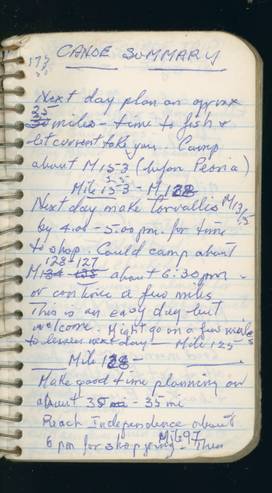 173
CANOE SUMMARY
Next day plan on approx
35 miles - time to fish &
let current take you. Camp
about M 153 (before Peoria)
Mile 153 - M 128
Next day make Corvallis M 131/
by 4:00 - 5:00 pm. for time
to shop. Could camp about
128-127
M 134 135 about 6:30 pm -
or continue a few miles
This is an easy day but
welcome. Might go on a few miles
to lessen next day - Mile 125
Mile 128 -
Make good time planning on
about 35 mi - 35 mi
Reach Independence about
Mile 97
6 pm for shopping - Then